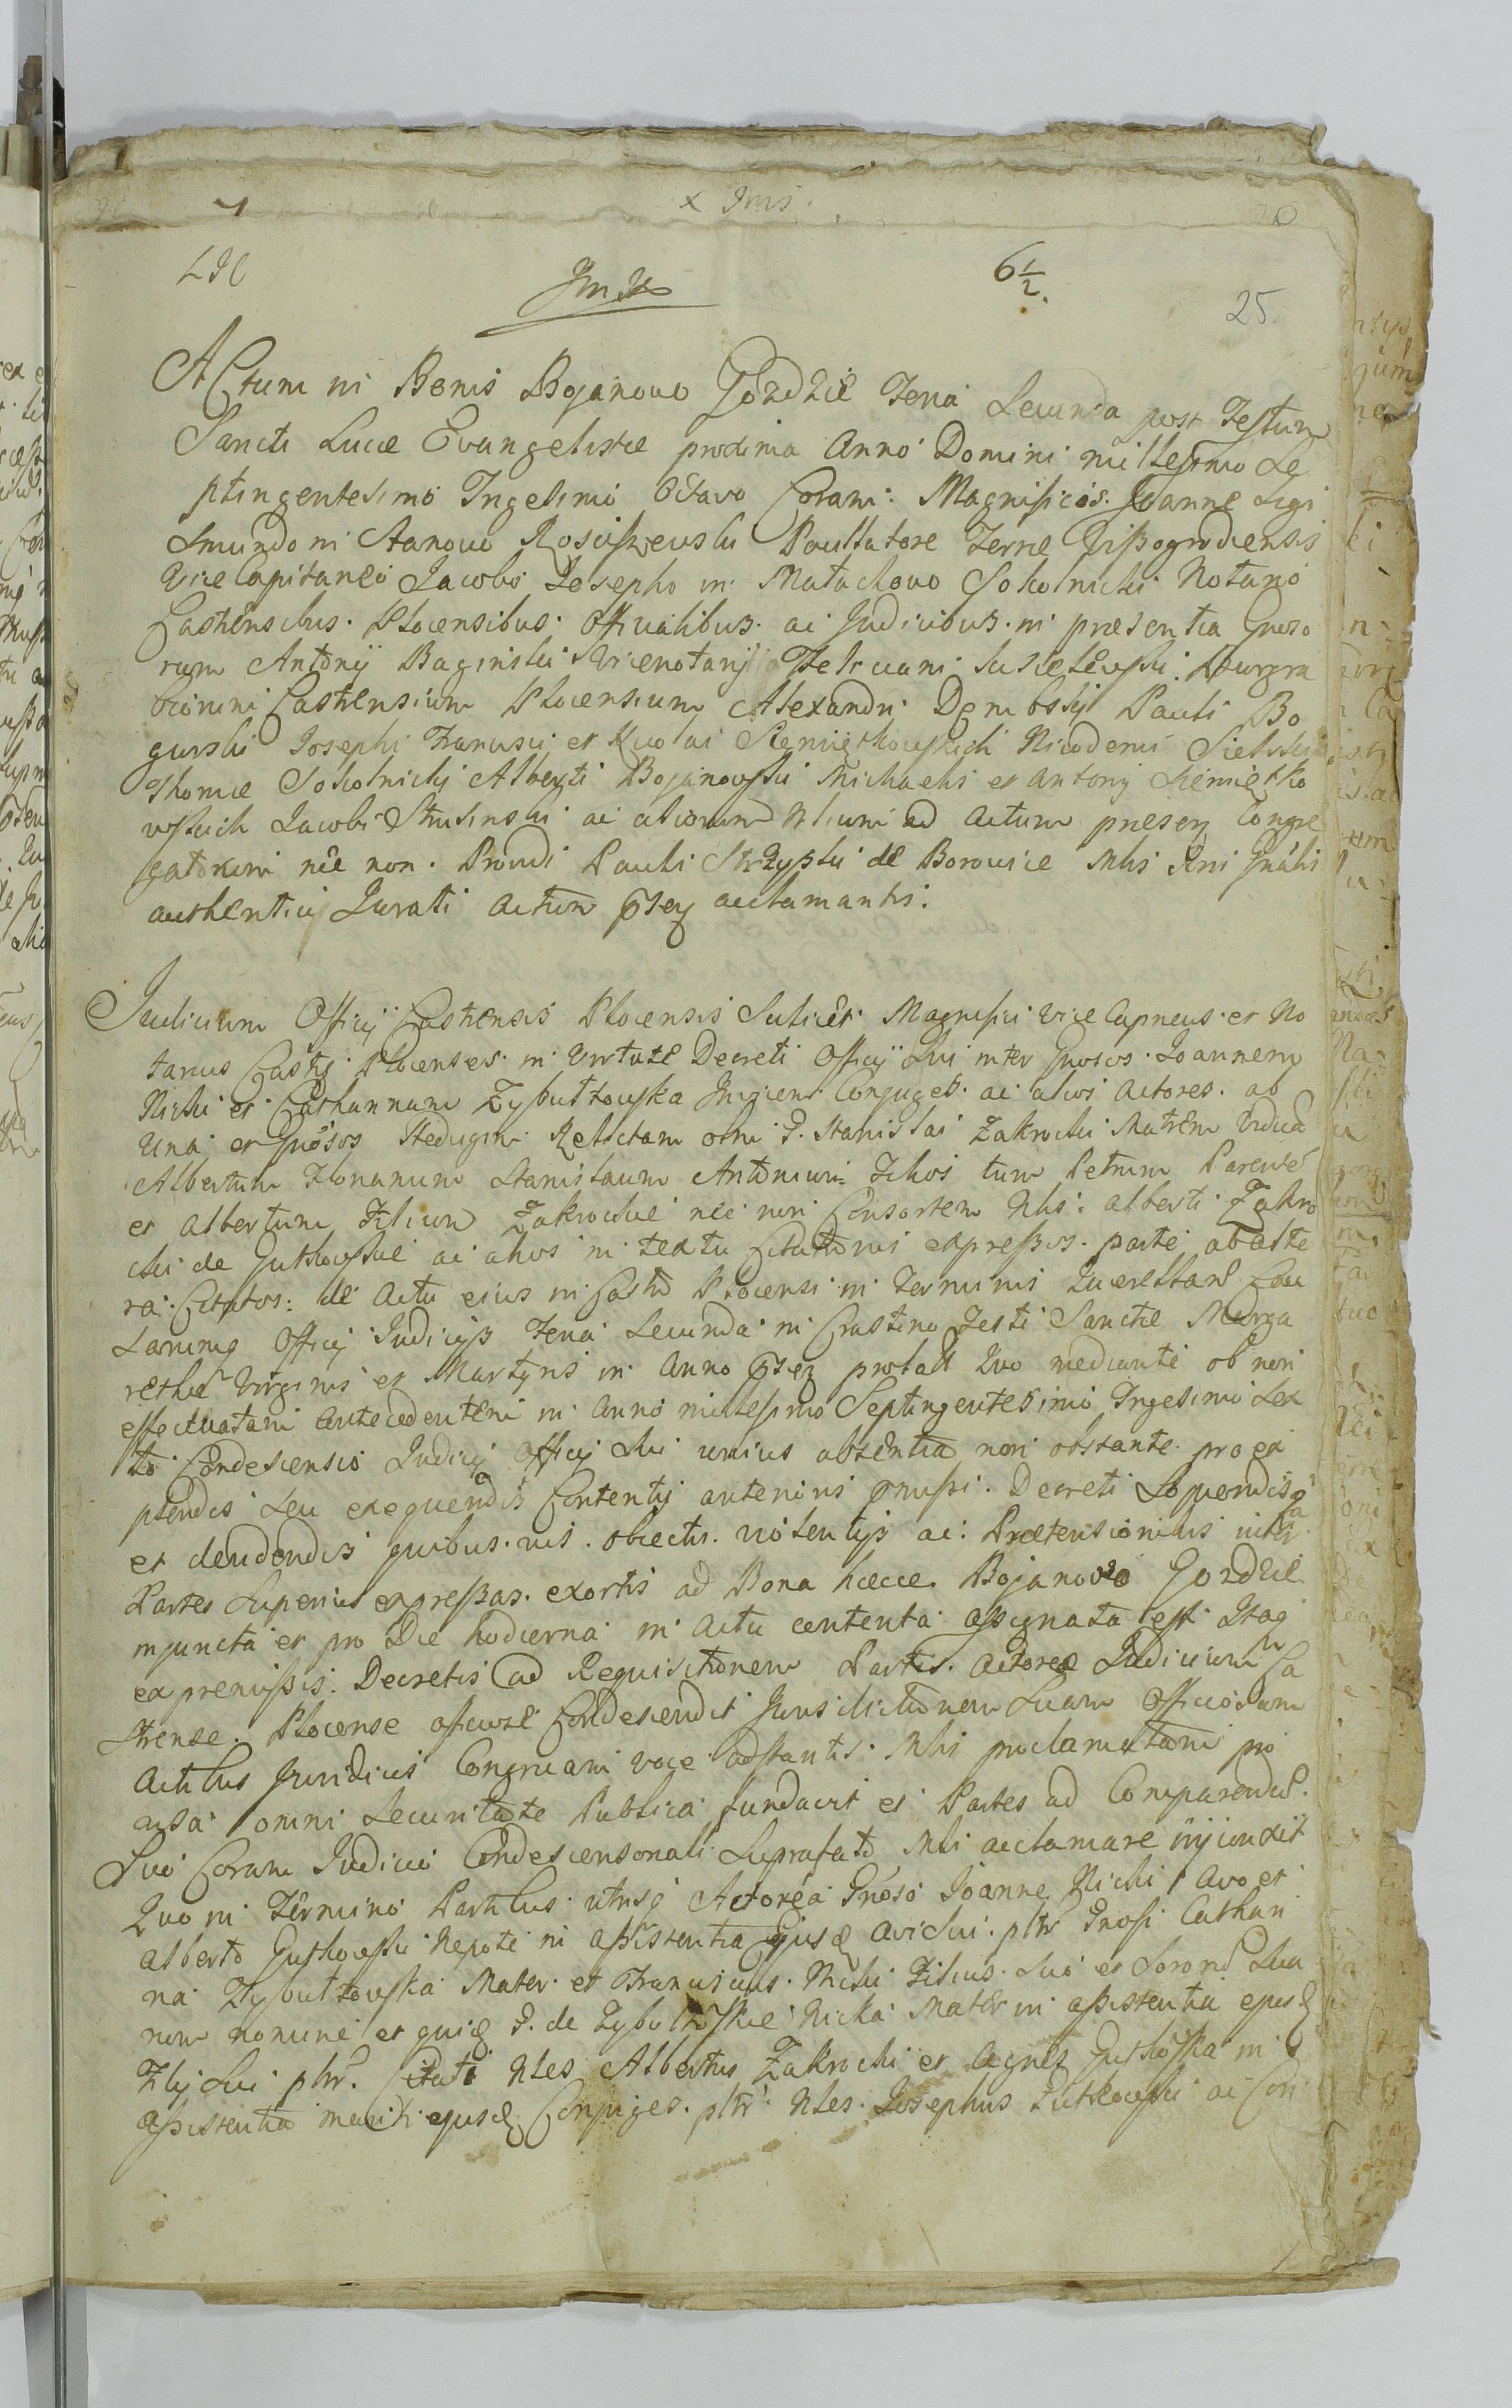 x Ims.
20
6 1/2.
25
Actum in Bonis Bojanowo Gozdzie Feria Secunda post Festum
Sancti Lucæ Evangelistæ proxima Anno Domini millesimo Se
ptingentesimo Trigesimo Octavo Coram Magnificis Joanne Sigi
smundo in Stanowo Rosciszewski Terræ Wissogrodiensis
Vice Capitaneo Jacobo Josepho in Matachowo Sokolnicki Notario
Castrensibus Plocensibus Officialibus ac Judicibus in præsentia Gneso
rum Antonij Baginski Vicenotarij Burgra
biorum Castrensium Plocensium Alexandri Dembski Pauli Bo
gurski Josephi Francisci et Nicolai Siemiętkowskich Nicodemi Sielski
Thomæ Sokolnicki Alberti Bojanowski Michaelis et Antonij Siemiętko
wskich Jacobi Strusinski ac aliorum Nlium ad Actum præsen Congre
gatorum nec non Providi Pauli Strzyski de Borowice Mlis Rni Gnalis
authentici Jurati Actum psen acclamantis.
Judicium Officij Castrensis Plocensis Scilicet Magnifici Vice Capneus et No
tarius Castrs Plocenses in Virtute Decreti Officij Sui inter Gnosos Joannem
Nicki et Catharinam Zybułtowska Conjuges ac alios Actores ab
una et Gnosos Hedvigim Relictam olim G. Stanislai Zakrocki Matrem Viduã
Albertum Florianum Stanislaum Antonium Filios tum Petrum Parentẽ
et Albertum Filium Zakrockie nec non Consortem Nlis Alberti Zakro
cki de Gutkowskie ac alios in textu Citationis expressos parte ab alte
ra Citatos de Actu ejus in Castro Plocensi in Terminis Querellarũ Cau
sarumq Officij Judicijs Feria Secunda in Crastino Festi Sanctæ Marga
rethæ Virginis et Martyris in Anno psen prolati Quo mediante ob non
effectuatam antecedentem in Anno millesimo Septingentesimo Trigesimo Sex
to Condescensio Judicij Officij Sui unius absentia non obstante pro ex
plendis seu exequendis Contentis anterioris pmissi Decreti Sopiendisq
et decidendis quibusvis objectis violentijs ac Prætensionibus inter
Partes Superius expressas exortis ad Bona hæcce Bojanowo Gozdzie
injuncta et pro Die hodierna in Actu contenta assignata est Itaq
ex præmissis Decretis ad Requisitionem Partis Actoreæ Judicium Ca
strense Plocense officiose Condescendit Jurisdictionem Suam Officiosam
Actibus Juridicis Congruam voce adstantis Mlis proclamatam pro
ausa omni Securitate Publica fundavit et Partes ad Comparendũ
Suo Coram Judicio Condescensoriali Suprafato Mli acclamare injunxit
Quo in Termino Partibus utrisq Actorea Gnoso Joanne Nicki Avo et
Alberto Gutkowski Nepote in assistentia Ejusd Avi Sui pltr Gnosi Cathari
na Zybułtowska Mater et Franciscus Nicki Filius Suo et Sororũ Sua
rum nomine et quid G. de Zybułtowskie Nicka Mater in assistentia ejusd
Flij Sui pltr. Citati Nles Albertus Zakrocki et Agnes Gutkoska in
assistentia mariti ejusd Conjuges pltr Nles Josephus Gutkowski ac Con